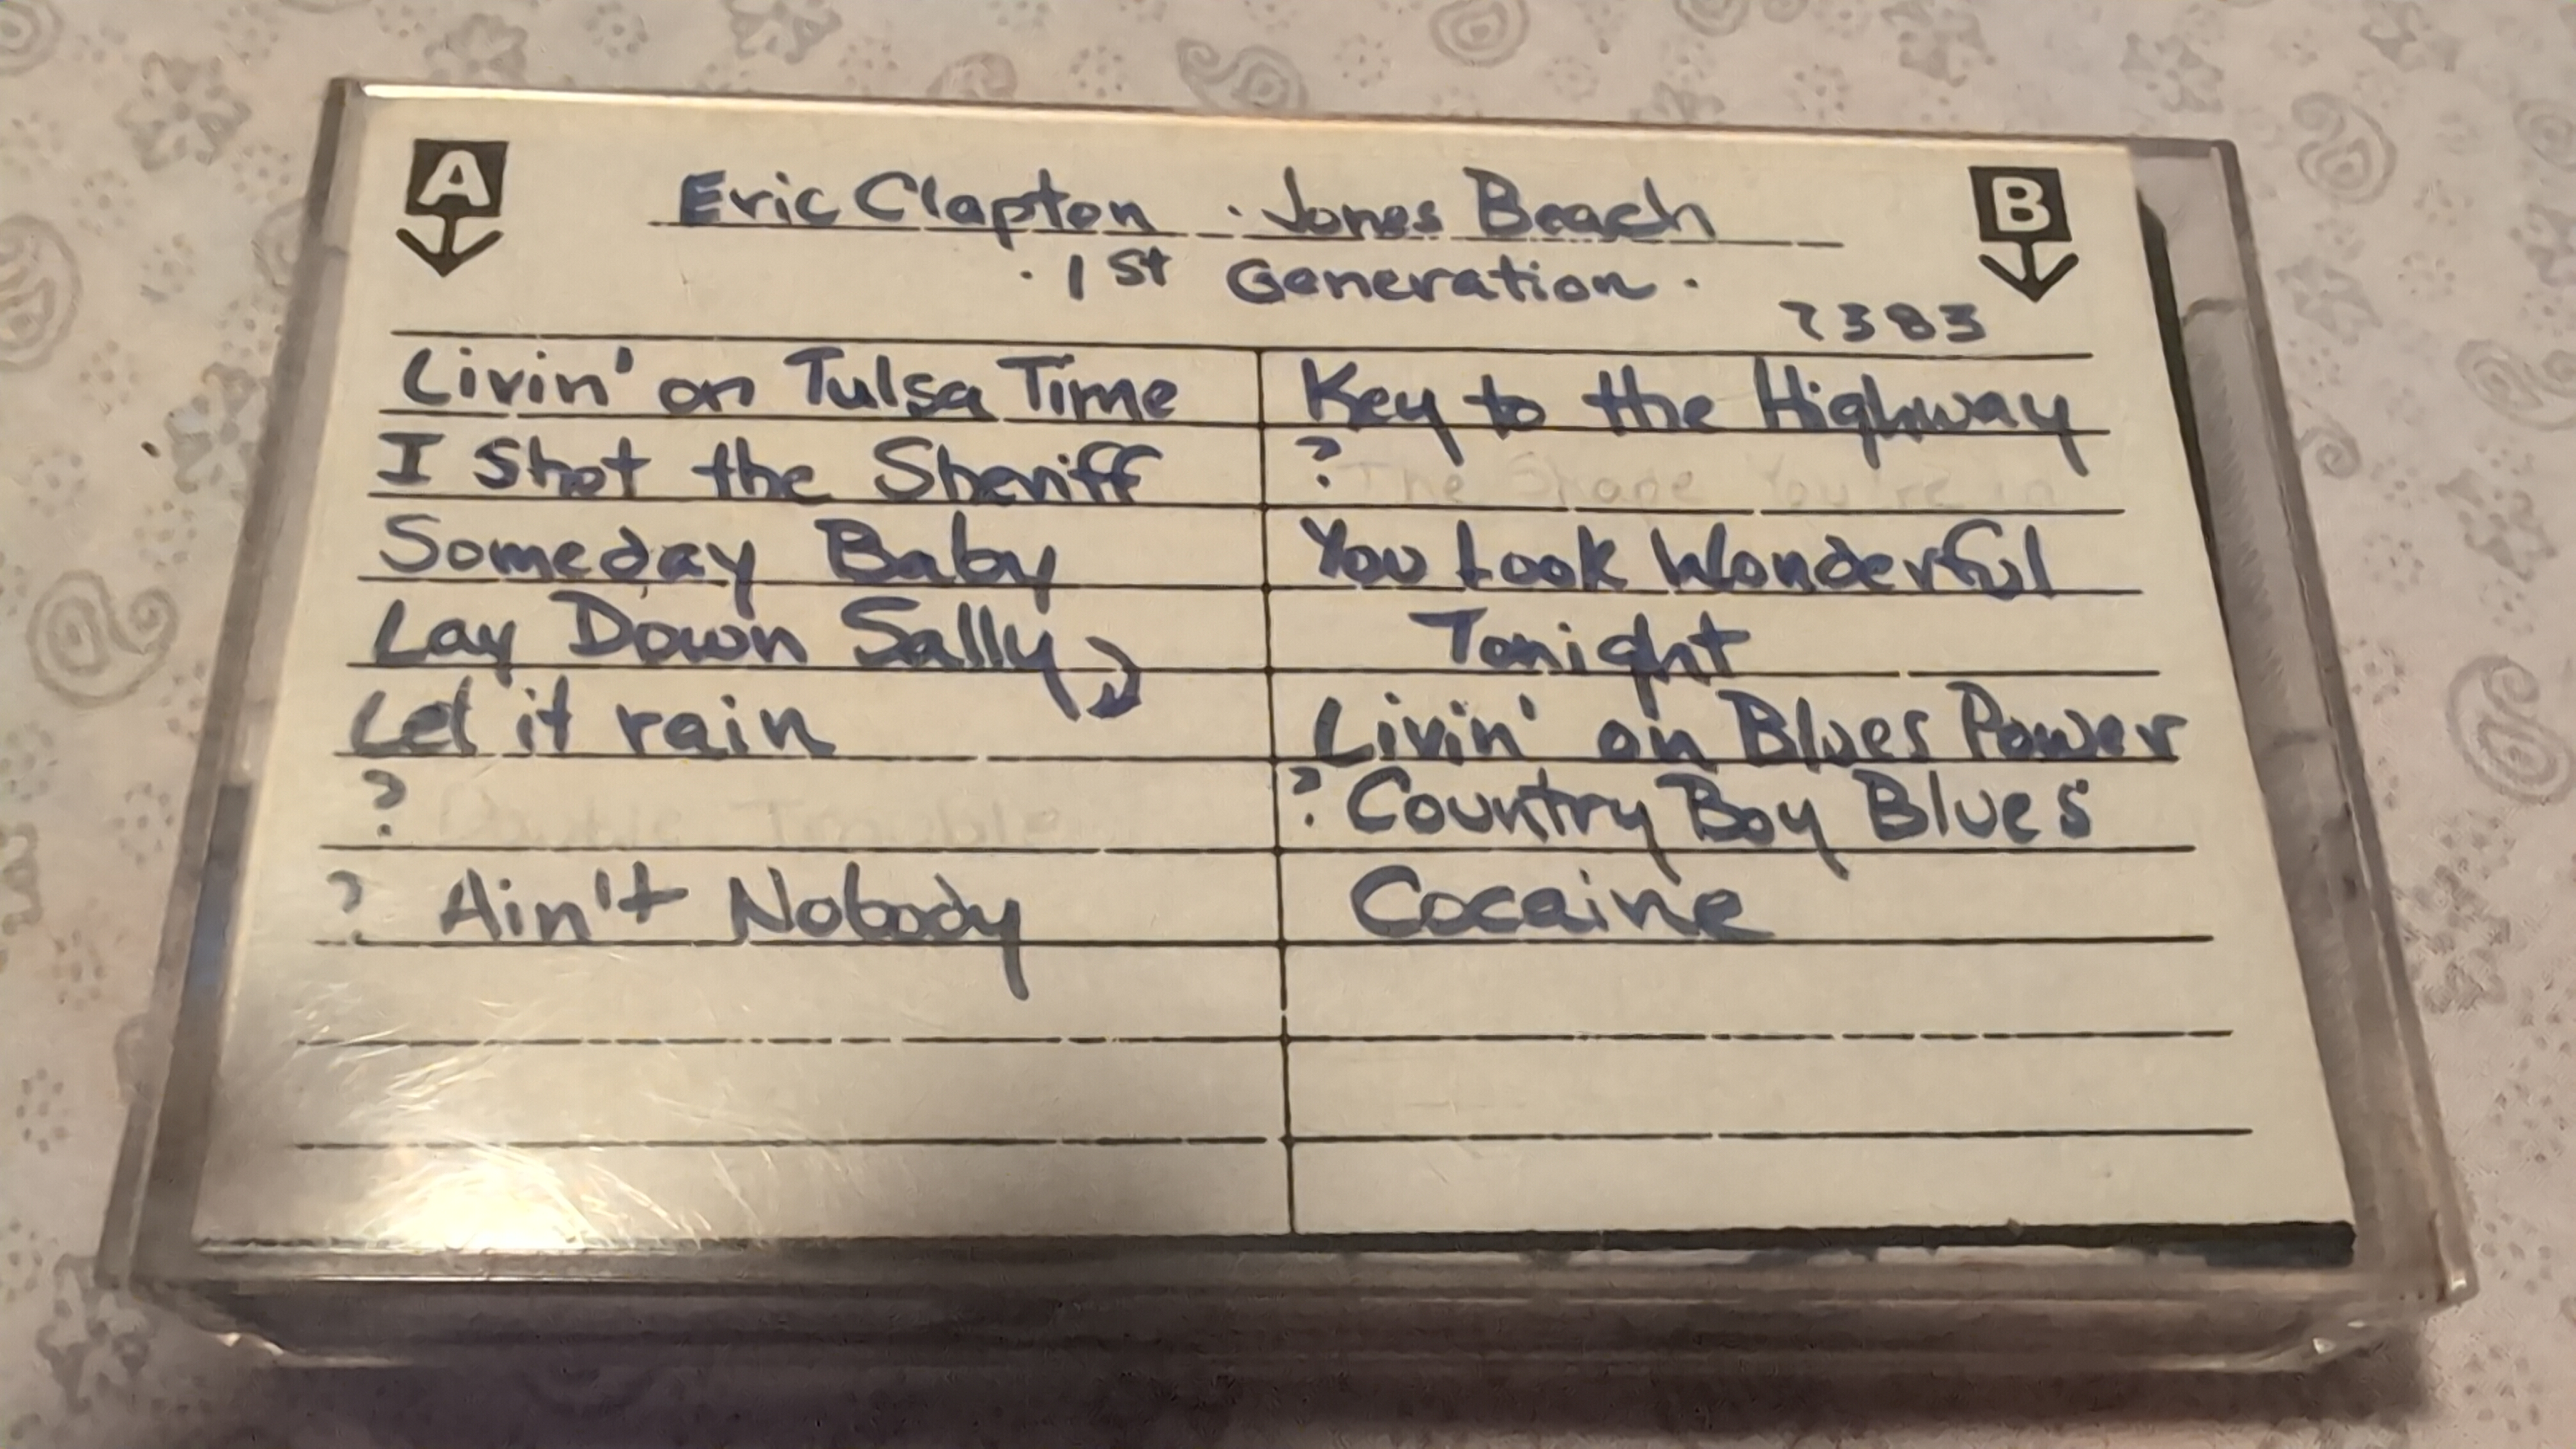 A
Eric Clapton · Jones Beach
B
· 1st Generation ·
7383
Livin' on Tulsa Time
I Shot the Sheriff
Someday Baby
Lay Down Sally
Let it rain
? Double Trouble
? Ain't Nobody
Key to the Highway
? The Shape You're in
You Look Wonderful
Tonight
Livin' on Blues Power
? Country Boy Blues
Cocaine